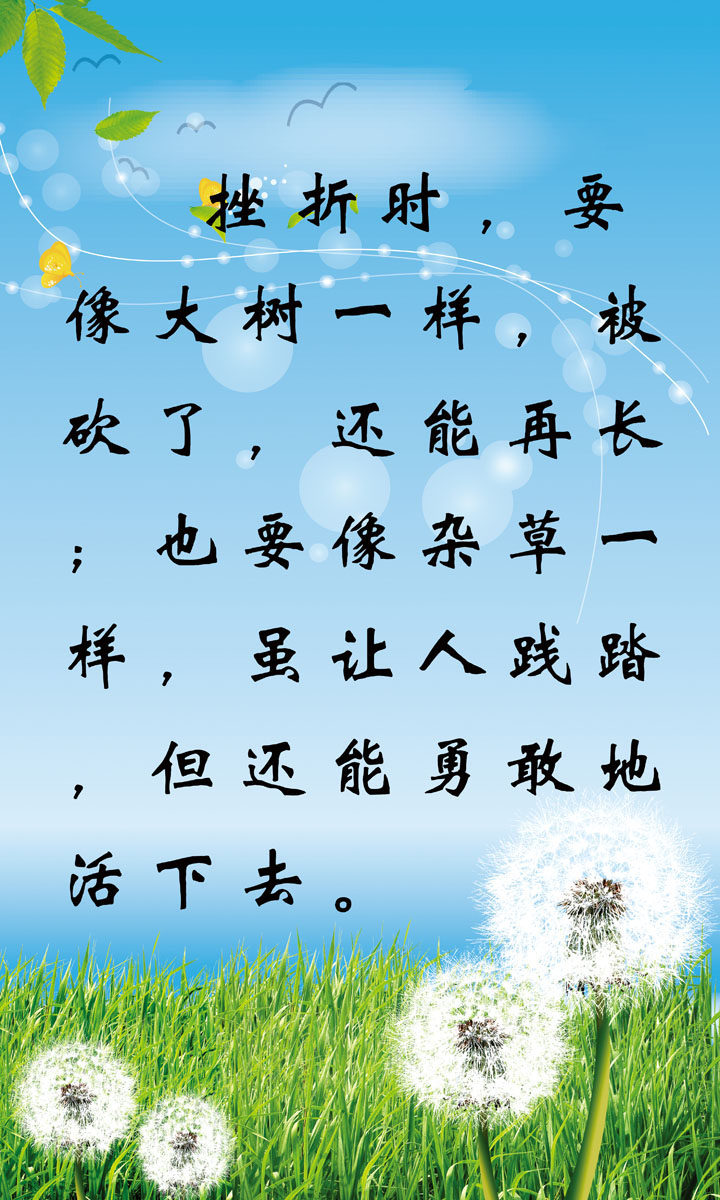 挫折时，要
像大树一样，被
砍了，还能再长
；也要像杂草一
样，虽让人践踏
，但还能勇敢地
活下去。